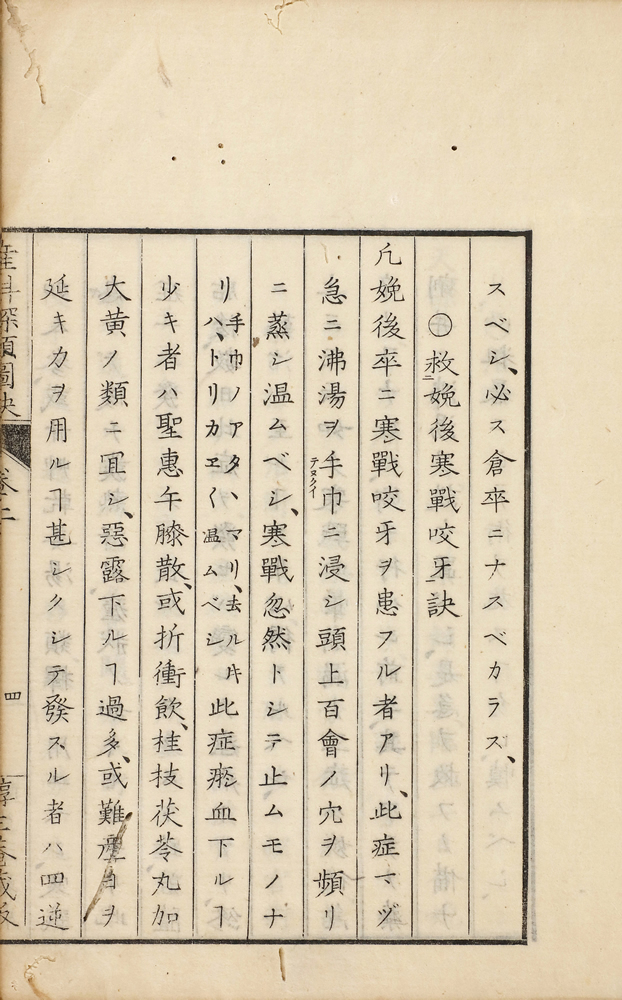 スベシ、必ス倉卒ニナスベカラス、
〇救ニ娩後寒戰咬牙訣
凡娩後卒ニ寒戰咬牙ヲ患フル者アリ、此症マヅ
急ニ沸湯ヲ手巾テヌクイニ浸シ頭上百會ノ穴ヲ頻リ
ニ蒸シ温ムベシ、寒戰忽然トシテ止ムモノナ
リ手巾ノアタヽマリ、去ルㇳキハ、トリカエ〱温ムベシ此症瘀血下ルヿ
少キ者ハ聖惠午膝散、或折衝飲、桂枝茯苓丸加
大黄ノ類ニ冝シ、惡露下ルヿ過多、或難產ヨヲ
延キカヲ用ルヿ甚シクシテ發スル者ハ四逆
産科探頷圖訣
卷二
四